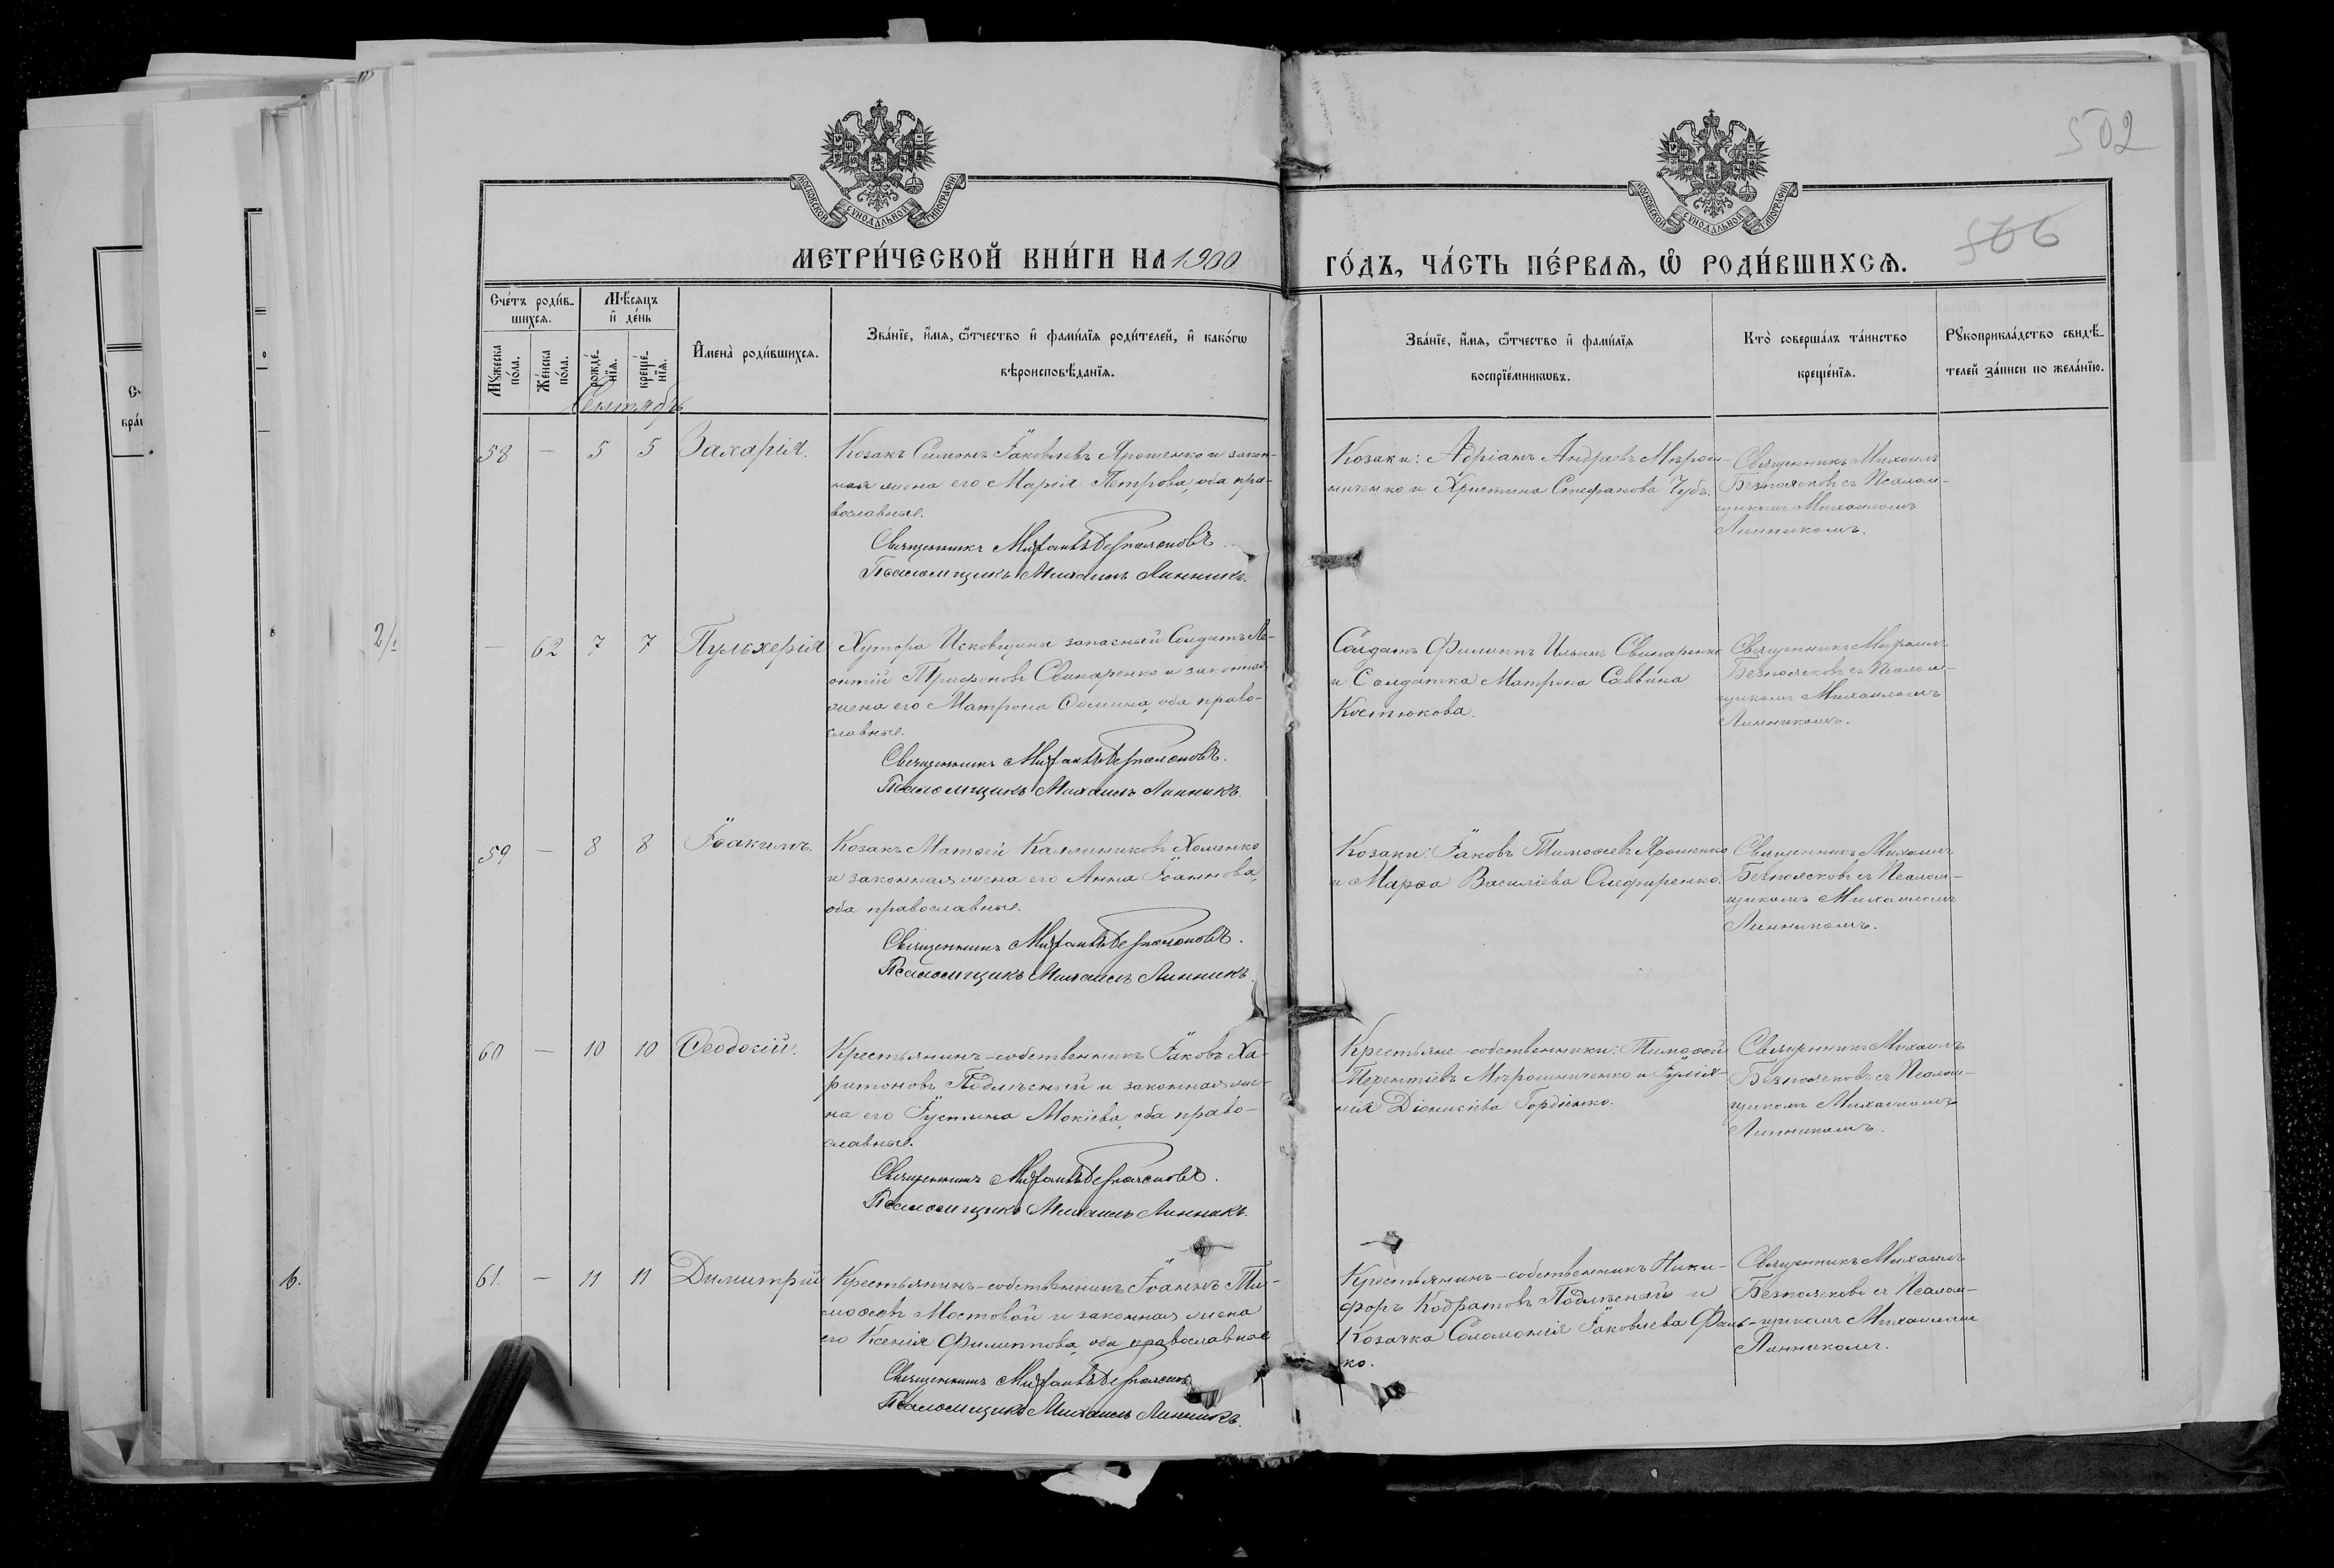 502
506
МОСКОВСКОЙ СѴНОДАЛЬНОЙ ТИПОГРАФІИ
МОСКОВСКОЙ СѴНОДАЛЬНОЙ ТИПОГРАФІИ
МЕТРИ́ЧЕСКОЙ КНИ́ГИ НА 1900
ГО́ДЪ, ЧА́СТЬ ПЕ́РВАѦ, Ѽ РОДИ́ВШИХСѦ.
Сче́тъ роди́в-
шихсѧ.
Мꙋ́жеска по́ла.
Же́нска по́ла.
Мѣ́сяцъ
и҆ де́нь
рожде́-
нїѧ.
креще́-
нїѧ.
И҆мена̀ роди́вшихсѧ.
Зва́нїе, и҆́мѧ, ѻ҆́тчество и҆ фами́лїѧ роди́телей, и҆ како́гѡ
вѣроисповѣ́данїѧ.
Зва́нїе, и҆́мѧ, ѻ҆́тчество и҆ фами́лїѧ
воспрїе́мникѡвъ.
Кто̀ соверша́лъ та́инство
креще́нїѧ.
Рꙋкоприкла́дство свидѣ́-
телей за́писи по жела́нїю.
Сентябрь
58 — 5 5 Захарія.
Козакъ Симонъ Іаковлевъ Ярошенко и закон-
ная жена его Марія Петрова, оба пра-
вославные.
Священникъ Михаилъ Безпоясковъ.
Псаломщикъ Михаилъ Линникъ.
Козаки: Адріанъ Андреевъ Мирош-
ниченко и Христина Стефанова Чубъ.
Священникъ Михаилъ
Безпоясковъ съ Псалом-
щикомъ Михаиломъ
Линникомъ.
— 62 7 7 Пульхерія
Хутора Исковщина запасный Солдатъ Ле-
онтій Трифоновъ Свинаренко и законная
жена его Матрона Ѳомина, оба право-
славные.
Священникъ Михаилъ Безпоясковъ.
Псаломщикъ Михаилъ Линникъ.
Солдатъ Филиппъ Ильинъ Свинаренко
и Солдатка Матрона Саввина
Костюкова.
Священникъ Михаилъ
Безпоясковъ съ Псалом-
щикомъ Михаиломъ
Линникомъ.
59 — 8 8 Іоакимъ.
Козакъ Матѳей Каллиниковъ Хоменко
и законная жена его Анна Іоаннова,
оба православные.
Священникъ Михаилъ Безпоясковъ.
Псаломщикъ Михаилъ Линникъ.
Козаки: Іаковъ Тимоѳеевъ Ярошенко
и Марѳа Василіева Олефиренко.
Священникъ Михаилъ
Безпоясковъ съ Псалом-
щикомъ Михаиломъ
Линникомъ.
60 — 10 10 Ѳеодосій.
Крестьянинъ-собственникъ Іаковъ Ха-
ритоновъ Подлѣсный и законная же-
на его Іустина Мокіева, оба право-
славные.
Священникъ Михаилъ Безпоясковъ.
Псаломщикъ Михаилъ Линникъ.
Крестьяне-собственники: Тимоѳей
Терентіевъ Мірошниченко и Іуліа-
нія Діонисіева Гордіенко.
Священникъ Михаилъ
Безпоясковъ съ Псалом-
щикомъ Михаиломъ
Линникомъ.
61. — 11 11 Димитрій
Крестьянинъ-собственникъ Іоаннъ Ти-
моѳеевъ Мостовой и законная жена
его Ксенія Филиппова, оба православные
Священникъ Михаилъ Безпоясковъ
Псаломщикъ Михаилъ Линникъ.
Крестьянинъ-собственникъ Ники-
форъ Кодратовъ Подлѣсный и
Козачка Соломонія Іаковлева Фень-
ко.
Священникъ Михаилъ
Безпоясковъ съ Псалом-
щикомъ Михаиломъ
Линникомъ.